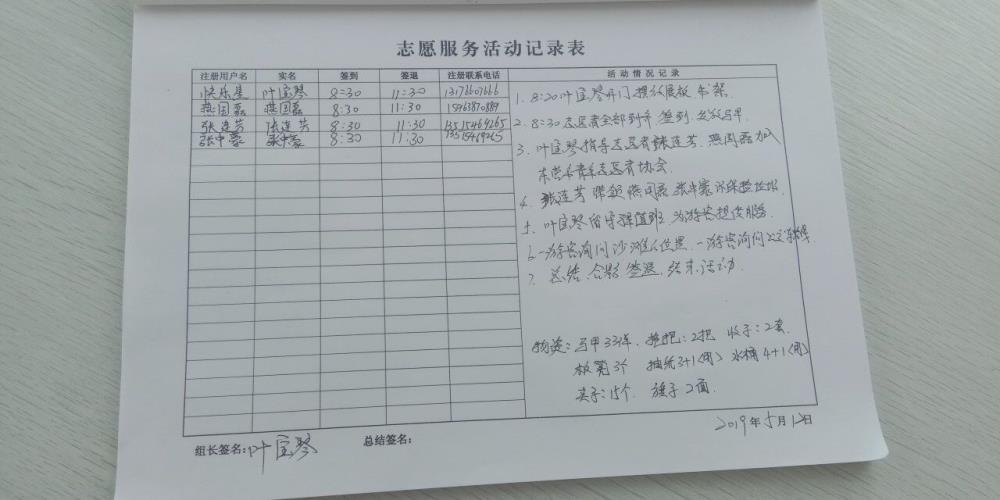 志愿服务活动记录表
注册用户名 实名 签到 签退 注册联系电话 活动情况记录
快乐星 叶宝琴 8:30 11:30
燕国磊 燕国磊 8:30 11:30 15963870889
张连芳 张连芳 8:30 11:30 13515469265
张中豪 张中豪 8:30 11:30 13515469265
1. 8:20叶宝琴开门摆放展板 书架
2. 8:30志愿者全部到齐 签到
3. 叶宝琴指导志愿者张连芳、燕国磊加
志愿者协会
4. 张连芳 带领燕国磊 张中豪
5. 叶宝琴留守 值班 为游客提供服务
6. 一游客询问沙滩 一游客询问
7. 总结、合影 签退、结束活动
物资:马甲33件、拖把:2把 2套
板凳3个 抽纸3+1(用) 水桶4+1(用)
夹子:15个 旗子2面
2019年5月12日
组长签名:叶宝琴 总结签名: